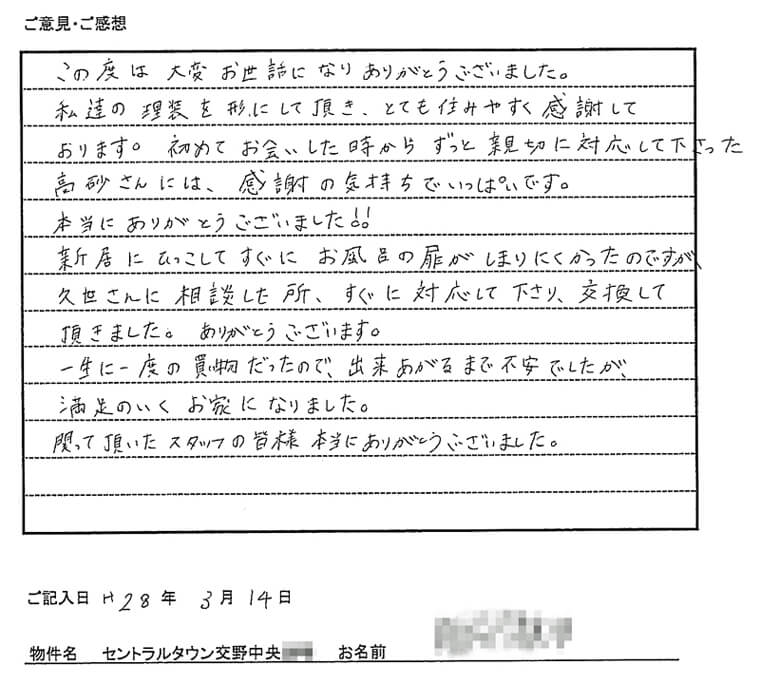 ご意見・ご感想
この度は 大変 お世話になり ありがとうございました。
私達の 理装を 形にして頂き、とても住みやすく感謝して
おります。 初めて お会いした時から ずっと 親切に対応して下さった
高砂さんには、 感謝の気持ちでいっぱいです。
本当にありがとうございました!!
新居に ひっこしてすぐに お風呂の扉がしまりにくかったのですが、
久世さんに 相談した所、すぐに 対応して下さり、交換して
頂きました。 ありがとうございます。
一生に一度の買い物だったので、出来あがるまで不安でしたが、
満足のいく お家に なりました。
関って頂いた スタッフの皆様 本当にありがとうございました。
ご記入日 H28年 3月14日
物件名 セントラルタウン交野中央 お名前